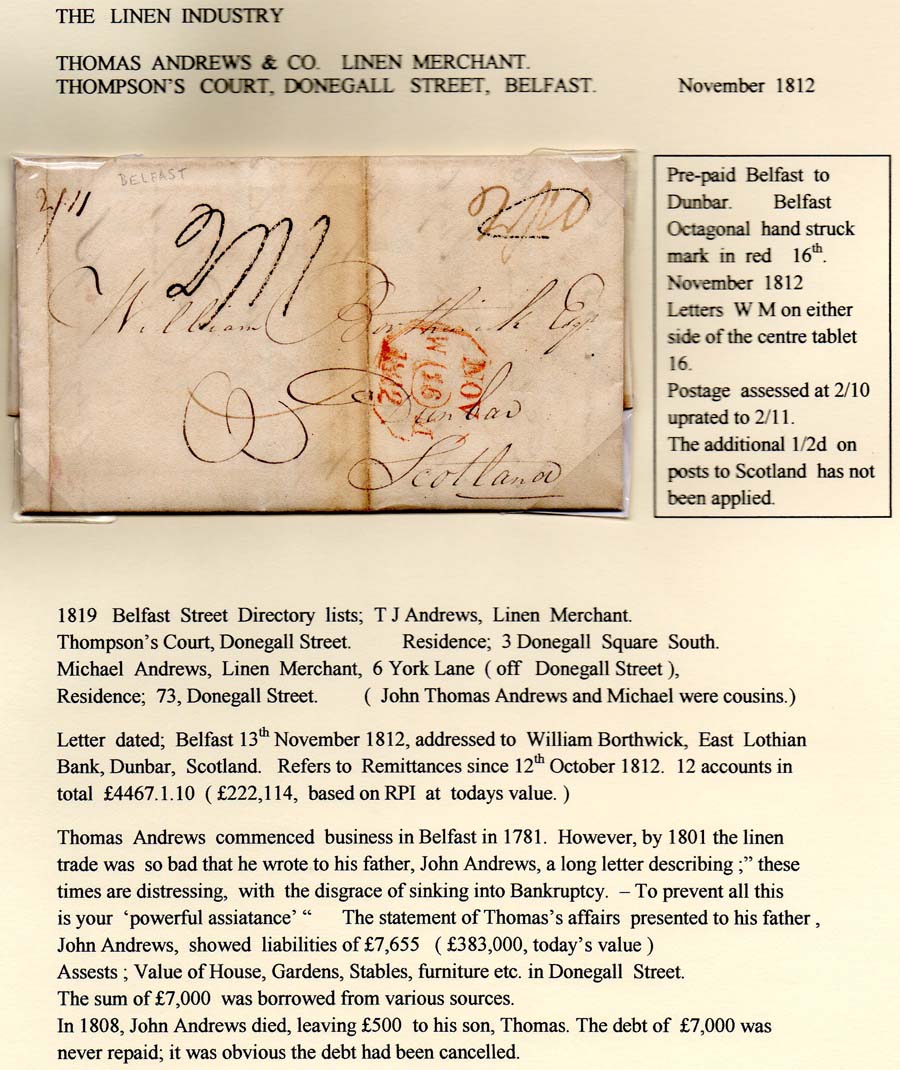 THE LINEN INDUSTRY
THOMAS ANDREWS & CO. LINEN MERCHANT.
THOMPSON'S COURT, DONEGALL STREET, BELFAST. November 1812
BELFAST
2/11
2/11
2/10
William Borthwick Esqr
Dunbar
Scotland
NOV
W 16 M
1812
Pre-paid Belfast to
Dunbar. Belfast
Octagonal hand struck
mark in red 16th.
November 1812
Letters W M on either
side of the centre tablet
16.
Postage assessed at 2/10
uprated to 2/11.
The additional 1/2d on
posts to Scotland has not
been applied.
1819 Belfast Street Directory lists; T J Andrews, Linen Merchant.
Thompson's Court, Donegall Street. Residence; 3 Donegall Square South.
Michael Andrews, Linen Merchant, 6 York Lane ( off Donegall Street ),
Residence; 73, Donegall Street. ( John Thomas Andrews and Michael were cousins.)
Letter dated; Belfast 13th November 1812, addressed to William Borthwick, East Lothian
Bank, Dunbar, Scotland. Refers to Remittances since 12th October 1812. 12 accounts in
total £4467.1.10 ( £222,114, based on RPI at todays value. )
Thomas Andrews commenced business in Belfast in 1781. However, by 1801 the linen
trade was so bad that he wrote to his father, John Andrews, a long letter describing ;" these
times are distressing, with the disgrace of sinking into Bankruptcy. – To prevent all this
is your 'powerful assiatance' " The statement of Thomas's affairs presented to his father ,
John Andrews, showed liabilities of £7,655 ( £383,000, today's value )
Assests ; Value of House, Gardens, Stables, furniture etc. in Donegall Street.
The sum of £7,000 was borrowed from various sources.
In 1808, John Andrews died, leaving £500 to his son, Thomas. The debt of £7,000 was
never repaid; it was obvious the debt had been cancelled.